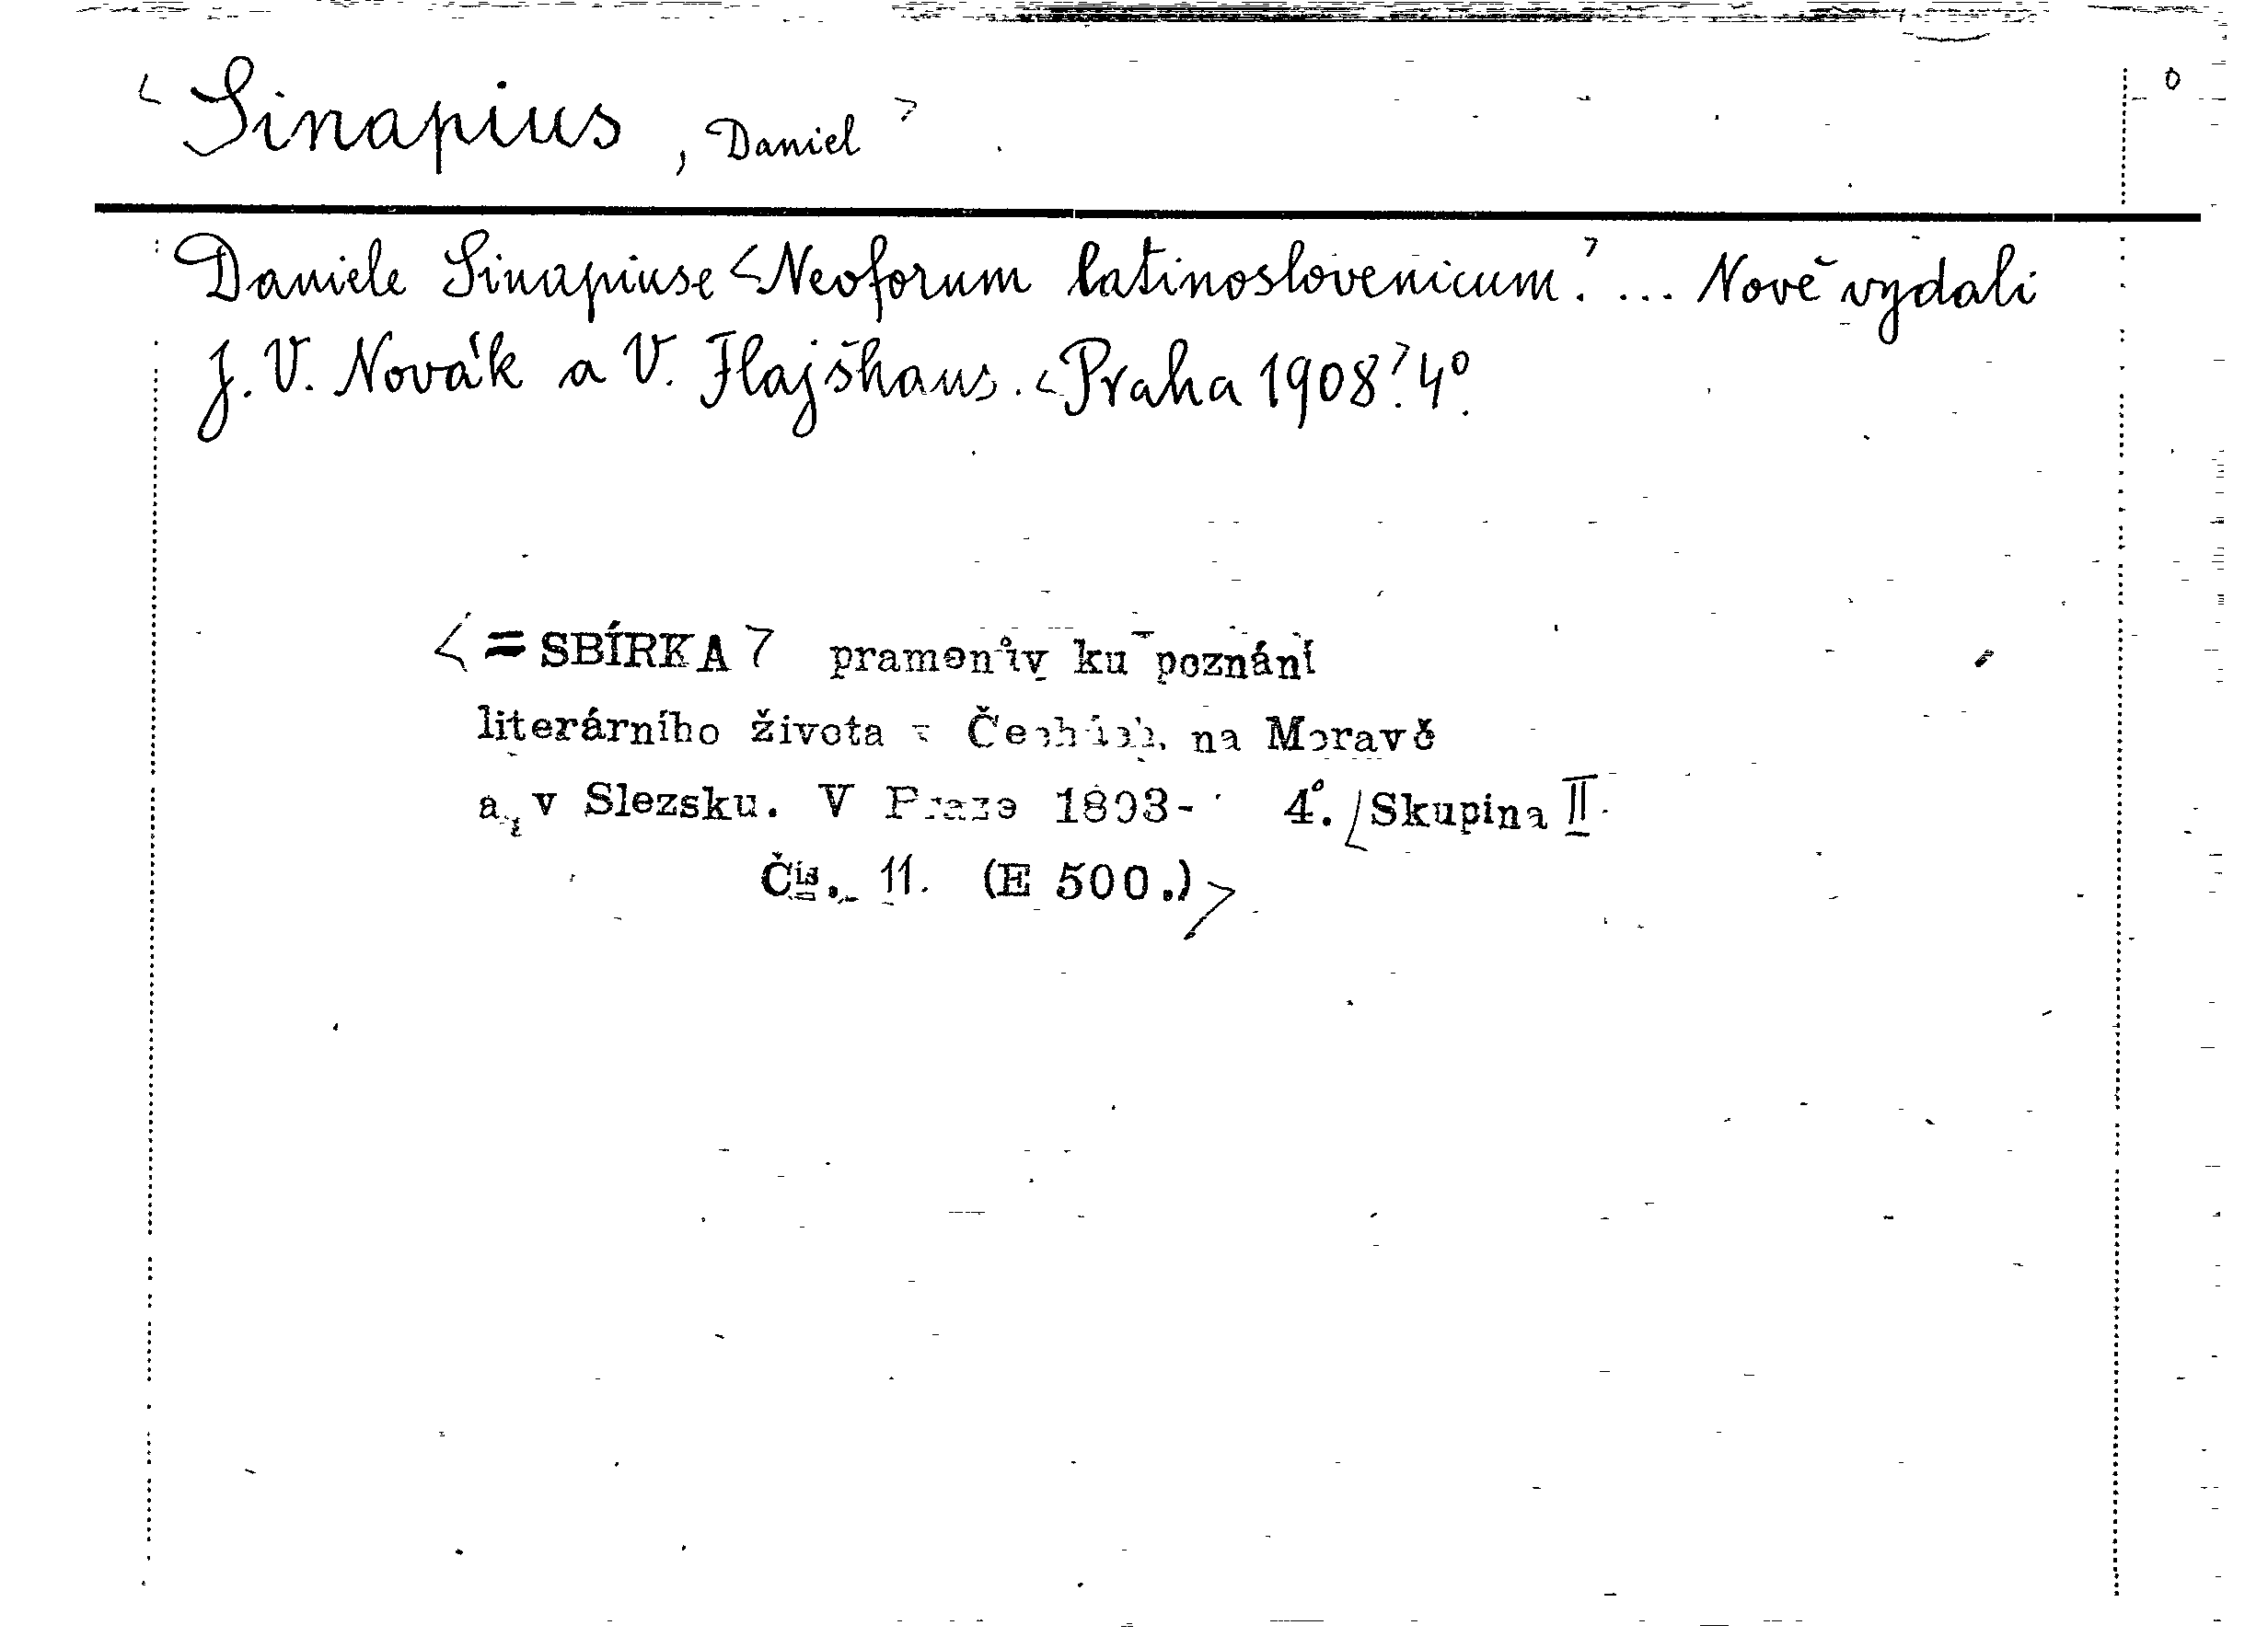 <Sinapius, Daniel>
Daniele Sinapiuse <Neoforum latinoslovenicum.> ... Nově vydali
J. V. Novák a V. Flajšhans. <Praha 1908.> 4º.
<=SBÍRKA> pramenův ku poznání
literárního života v Čechách, na Moravě
a v Slezsku. V Praze 1893- 4º. [Skupina II.
Čís. 11. (E 500.)>